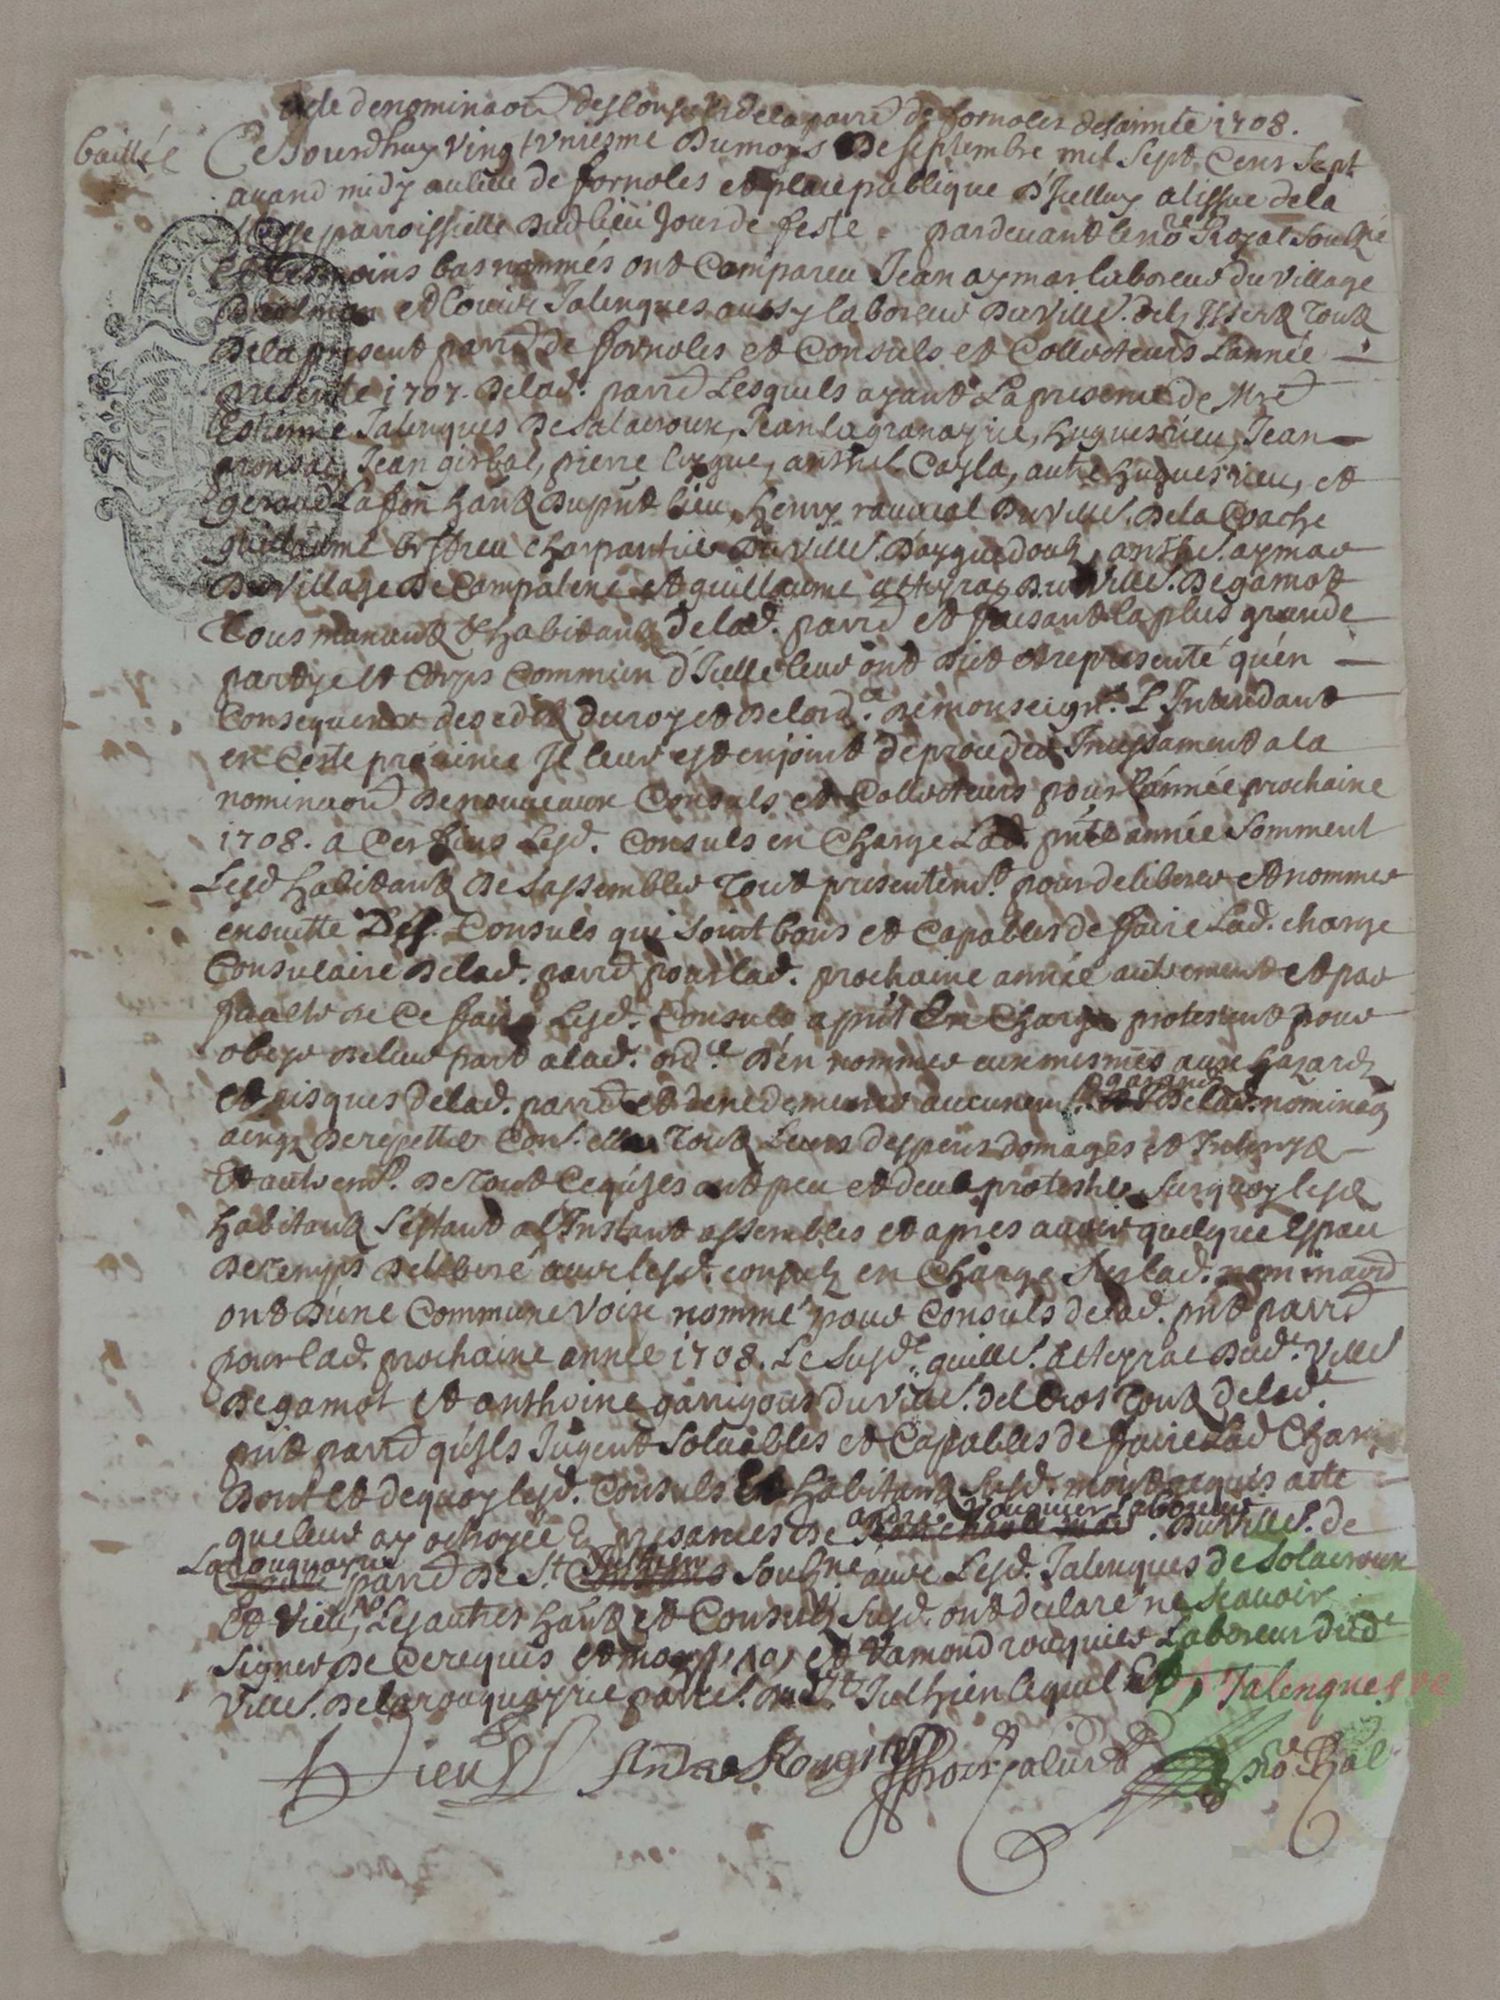 acte de nominaon des consuls de la parre de fornoles de lannée 1708.
baillée
Ce Jourdhuy vingt uniesme du moys de septembre mil sept cens sept
avand midy au lieu de fornoles et place publique d'Icelluy a lissue de la
Messe parroissielle dud lieu Jour de feste pardevant le nore Royal soubzné
et tesmoins bas nommés ont compareu Jean aymar laboreur du village
et Louis Talenques aussy laboreur du ville. del tous
de la present parre de fornoles et Consuls et Collecteurs Lannée
presente 1707. de lad. parre Lesquels ayant La presence de Mre
Estienne Talenques de Salacroux, Jean lagranayrie, hugues rieu, Jean
Jean girbal, pierre anthe. Cayla, autre hugues rieu, et
geraud Lafon hants du pnt lieu, henry du ville. de la Coache
guillaume charpantier du ville. anthe. aymar
du village de Compalene et guillaume atteyrac du ville. de gamot
Tous manants et habitants de lad. parre et faisant la plus grande
partye et corps commun d'Icelle leur ont dict et representé qu'en
consequence des edits du roy et de lordce. de monseigr. L'Intendant
en ceste province Il leur est enjoint de proceder Incessament a la
nominaon de nouveaux Consuls et Collecteurs pour l'année prochaine
1708. a ces fins Lesd. consuls en charge Lad. pnte année somment
Lesd habitants de sassembler tout presentemt. pour deliberer et nommer
ensuitte des. Consuls qui soint bons et capables de faire Lad. charge
Consulaire de lad. parre pour lad. prochaine année autrement et par
faulte de ce faire Lesd. Consuls a pnt En charge protestent pour
obeyr de leur part a lad. ordce d'en nommer eux mesmes aux hazardz
et risques de lad. parre et de ne demeurer aucunemt. garands de lad. nominaon
ains de repetter con. elle touts Leurs despens domages et Interests
Et autremt. de tout ce qu'ils ont peu et deub protester surquoy lesd
habitants s'estant a l'Instant assembles et apres avoir quelque espace
de temps deliberé avec lesd. consuls en charge sur lad. nominaon
ont d'une commune voix nommé pour consuls de lad. pnt parre
pour lad. prochaine année 1708. Le susd. guille. atteyrac dud. ville
de gamot et anthoine garrigous du ville. del Cros touts de lad.
pnt parre qu'ils Jugent solvables et capables de faire Lad Charge
Dont et de quoy lesd. Consuls Et habitants susd. m'ont requis acte
que leur ay octroyée En presances de andre rouquier laboreur du ville. de
La rouquayrie parre de St. Julhien soubné avec Lesd. Talenques de Solacroux
Et rieu, Les autres hants et Consuls susd. ont declaré ne scavoir
signer de ce requis et moy et ramond rouquier Laboreur dud
ville. de la rouquayrie parre. dud. St Julhien lequel Talenques
Rieu Andre Rouquier nore Ral